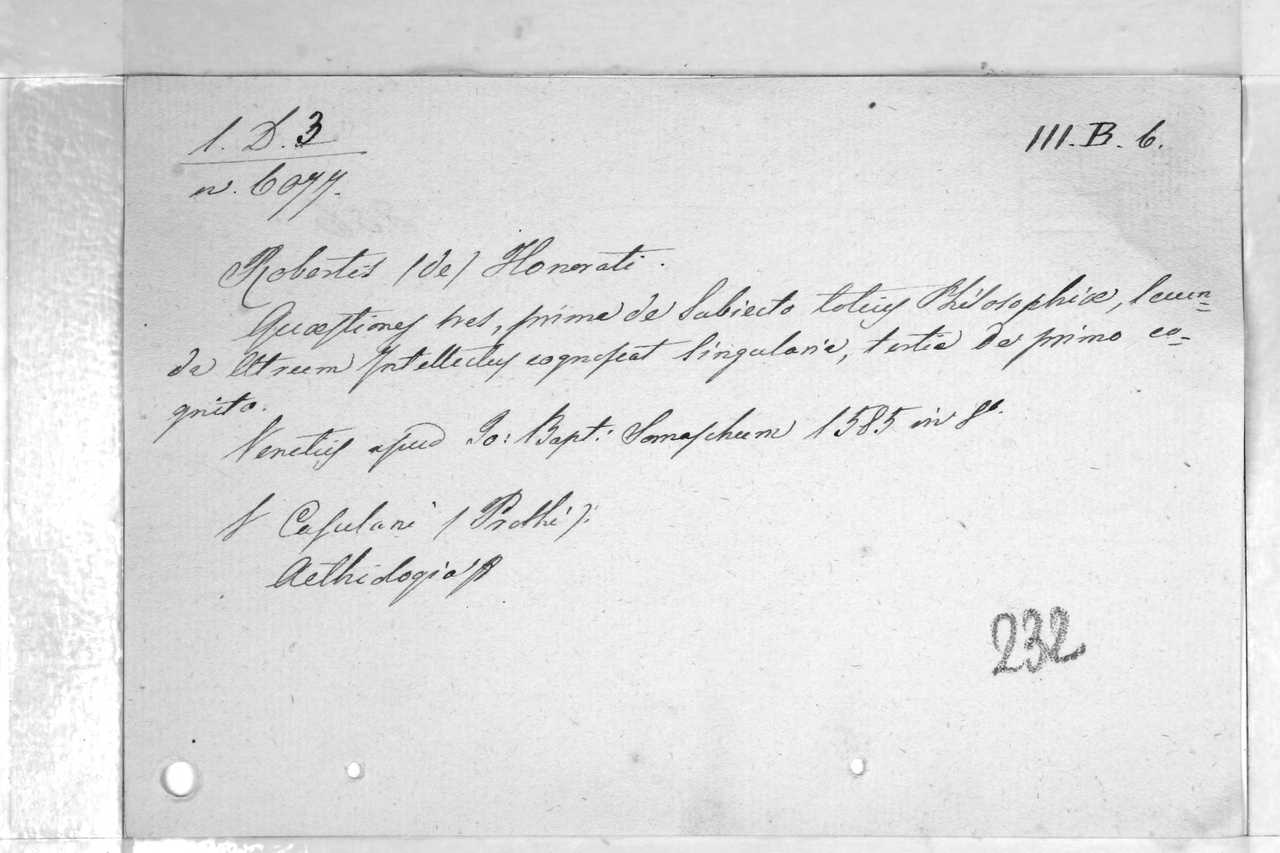 1. D. 3
III. B. 6.
n. 6077.
Robertis (de) Honorati.
Quæstiones tres, prima de Subiecto totius Philosophiæ, secun=
da Utrum Intellectus cognoscat singularia, tertia De primo co=
gnito.
Venetiis apud Io: Bapt: Somaschum 1585 in 8º.
V Casulani (Prothi):
Aethidogia
232